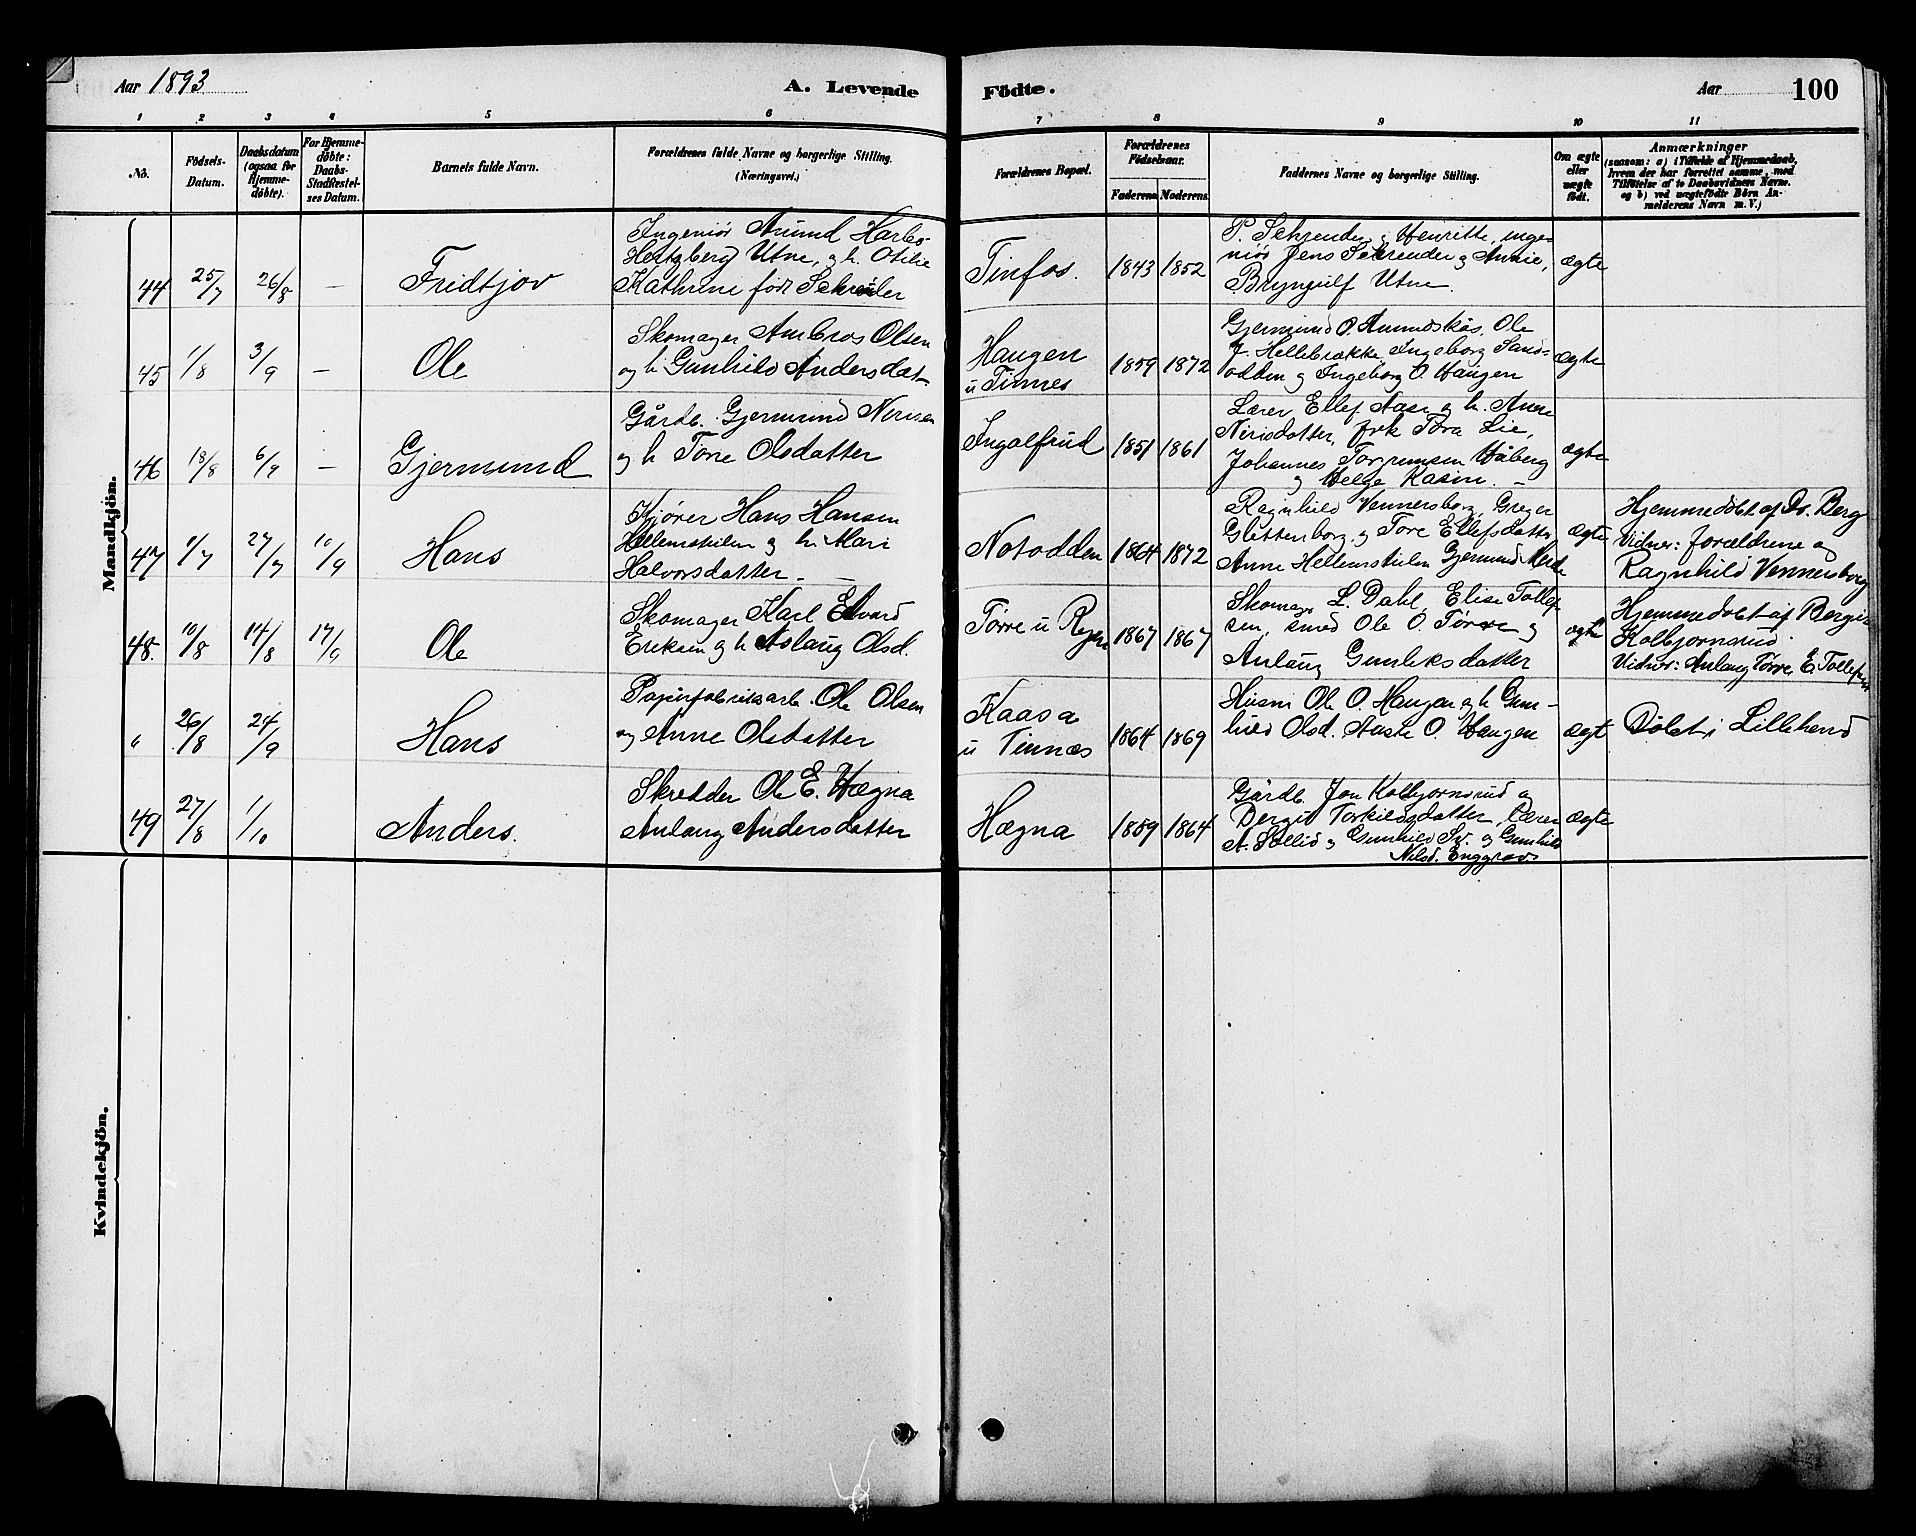 Aar 1893
A. Levende Födte.
Aar
100
1 2 3 4 5 6 7 8 9 10 11
No.
Födsels-Datum.
Daabsdatum (ogsaa for Hjemme-döbte).
For Hjemme-döbte: Daabs-Stadfæstel-ses Datum.
Barnets fulde Navn.
Forældrenes fulde Navne og borgerlige Stilling.
(Næringsvei.)
Forældrenes Bopæl.
Forældrenes Födselsaar.
Faderens Moderens
Faddernes Navne og borgerlige Stilling.
Om ægte eller uægte födt.
Anmærkninger
(saasom: a) i Tilfælde af Hjemmedaab, hvem der har forrettet samme, med Tilföielse af to Daabsvidners Navne. og b) ved uægtefödte Börn Anmelderens Navn m. V.)
Mandkjön.
44 25/7 26/8 — Fridtjov
Ingeniör Amund Harbo-
Hertzberg Utne, og h. Otilie
Kathrine födt
Tinfos. 1843 1852
og Henriette, inge-
niör Jens og Annie,
Brynjulf Utne
ægte
45 1/8 3/9 — Ole
Skomager Ambros Olsen
og h. Gunhild Andersdat-
Haugen
u Tinnes
1859 1872
Gjermund O. Amundskås, Ole
J. Hellebrække, Ingeborg Sand-
odden og Ingeborg O. Haugen
ægte
46 18/8 6/9 — Gjermund
Gårdb. Gjermund Nirisen
og h. Torre Olsdatter
Ingolfrud 1851 1861
Lærer Ellef Aase og h. Anne
Nirisdatter, frk Tora Lie,
Johannes Torgrimsen Håberg
og Helge Kasin. —
ægte
47 1/7 27/7 10/9 Hans
Kjörer Hans Hansen
Hellemskilen og h. Mari
Halvorsdatter —
Notodden 1864 1872
Ragnhild Vennersborg, Greger
Glittenborg, og Tore Ellefsdatter
Anne Hellemskilen Gjermund
ægte
Hjemmedöbt af Dr. Berg
Vidner: forældrene og
Ragnhild Vennersborg
48. 10/8 14/8 17/9 Ole
Skomager Karl Edvard
Eriksen og h. Aslaug Olsd.
Törre u 1867 1867
Skomag. L. Dahl, Elise Tollef-
sen, smed Ole O. Törre og
Anlaug Gunleksdatter
ægte
Hjemmedöbt af Bergit
Kolbjörnsrud
Vidner: Anlaug Törre, E. Tollefsen
" 26/8 24/9 Hans
Papirfabriksarb. Ole Olsen
og Anne Olsdatter
Kaasa
u Tinnæs
1864 1869
Husm Ole O. Haugen og h. Gun-
hild Olsd. Aaste O. Haugen
ægt
Döbt i Lillehered
49 27/8 1/10 Anders.
Skredder Ole E. Hægna
Anlaug Andersdatter
Hægna 1859 1864
Gårdb. Jon Kolbjörnsrud og
Bergit Torkildsdatter, Lærer
A. Sollid og Gunhild Sv. og Gunhild
Nilsd. Enggrav
ægte
Kvindekjön.